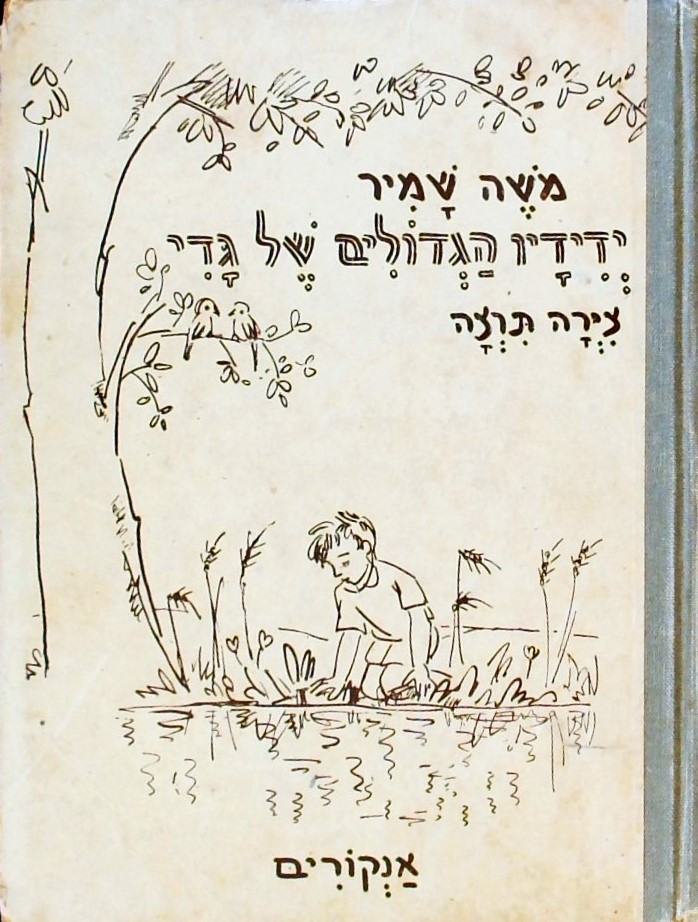 מֹשֶׁה שָׁמִיר
יְדִידָיו הַגְּדוֹלִים שֶׁל גָּדִי
צִיְּרָה תִּרְצָה
אַנְקוֹרִים